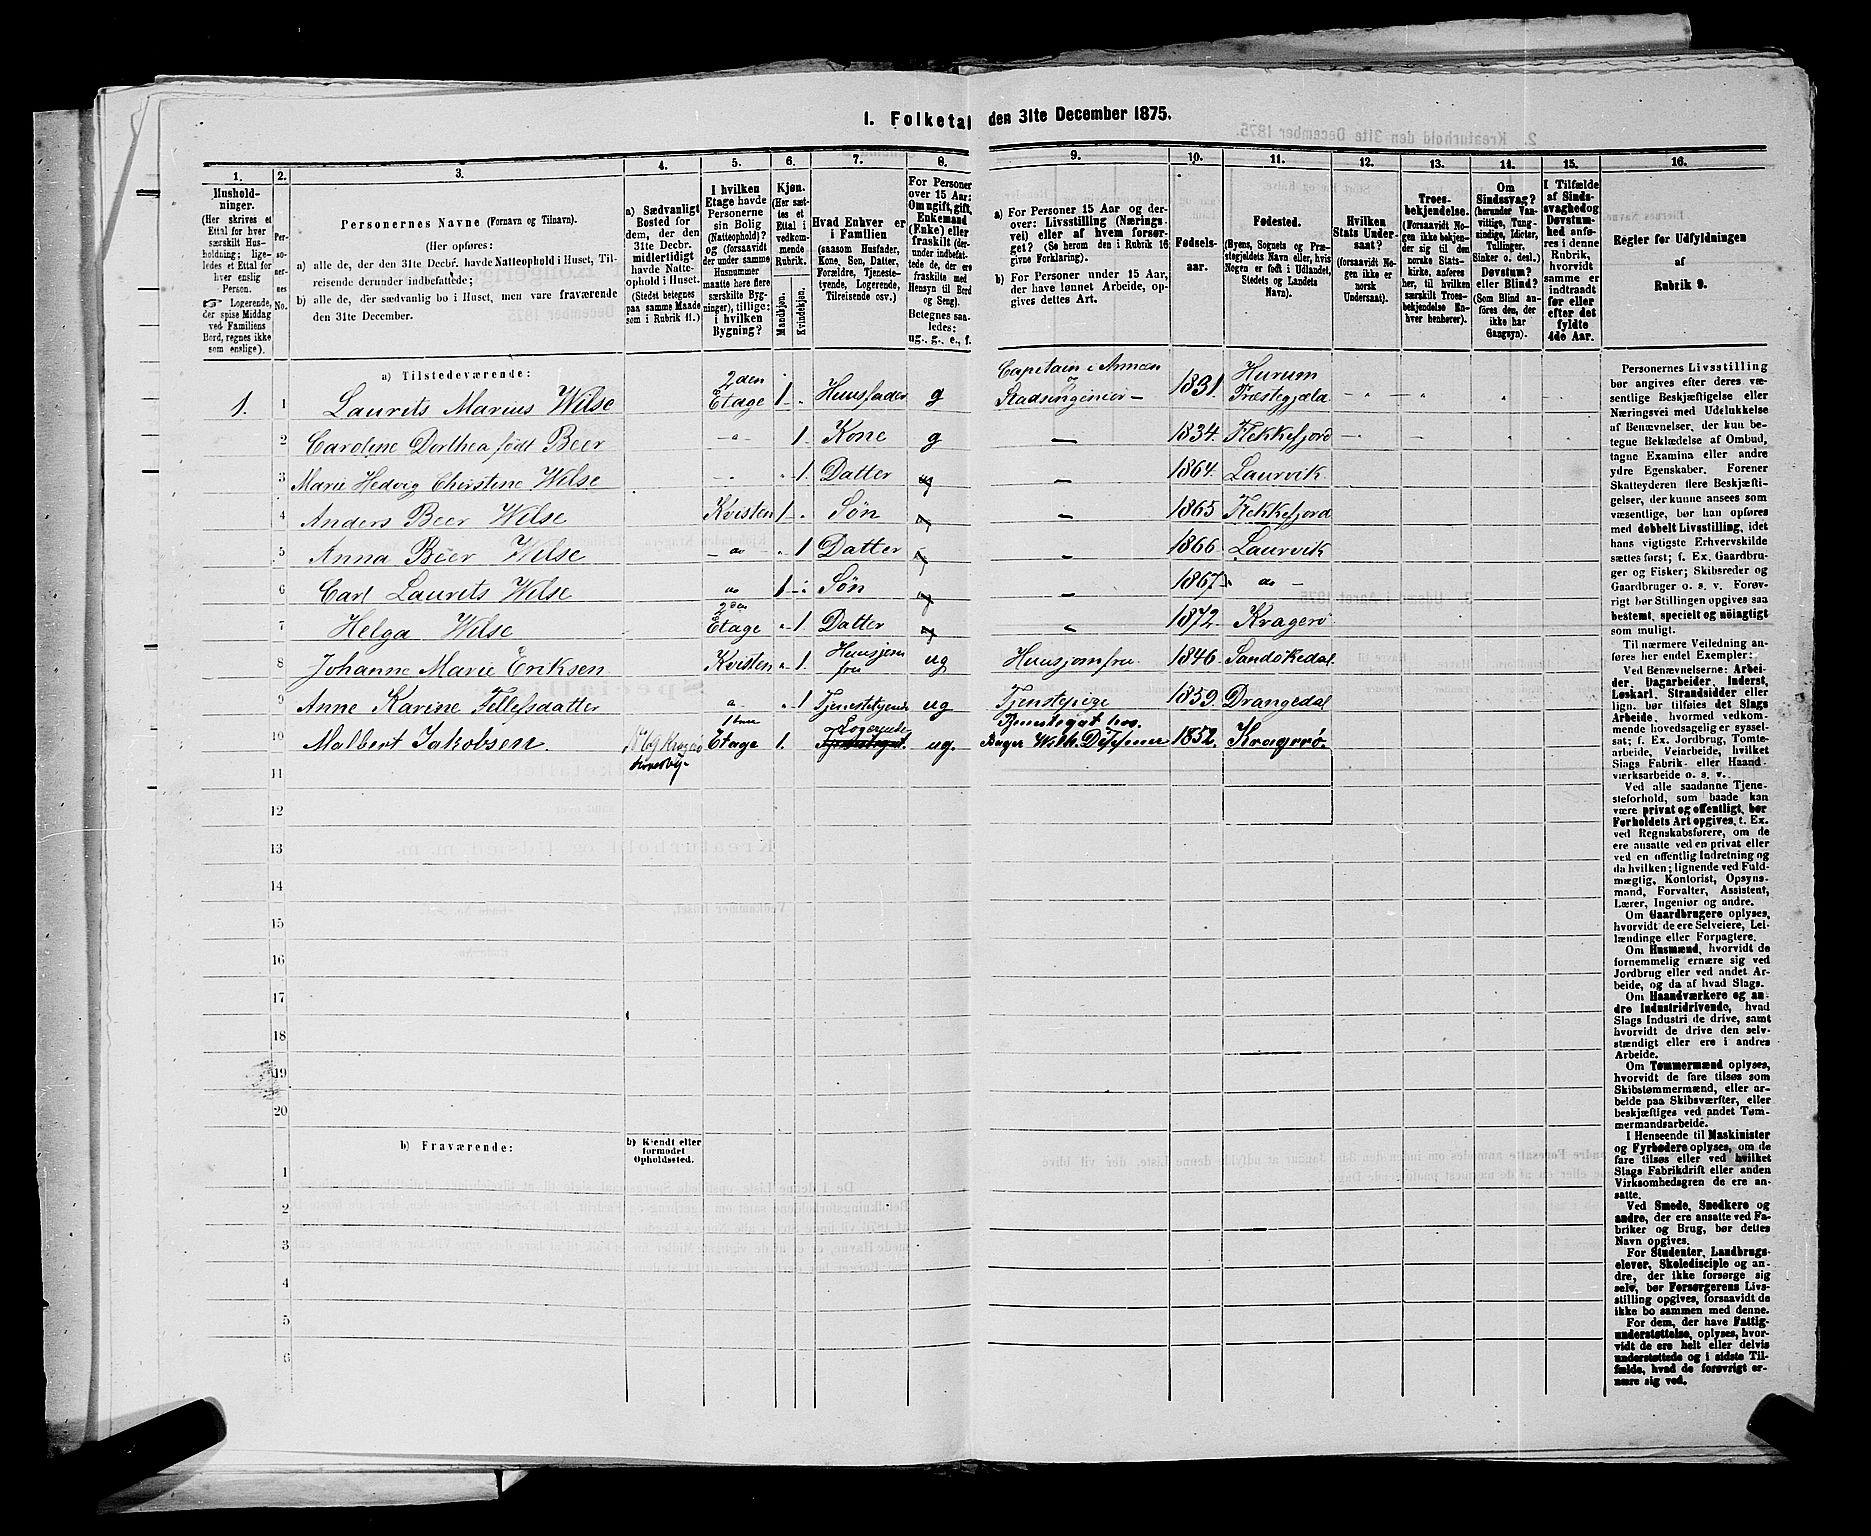 1. Folketal den 31te December 1875.
1. 2. 3. 4. 5. 6. 7. 8. 9. 10. 11. 12. 13. 14. 15. 16.
Hushold-
ninger.
(Her skrives et
Ettal for hver
særskilt Hus-
holdning; lige-
ledes et Ettal for
hver enslig
Person.
☞ Logerende,
der spise Middag
ved Familiens
Bord, regnes ikke
som enslige).
Per-
soner-
nes
No.
Personernes Navne (Fornavn og Tilnavn).
(Her opføres:
a) alle de, der den 31te Decbr. havde Natteophold i Huset, Til-
reisende derunder indbefattede;
b) alle de, der sædvanlig bo i Huset, men vare fraværende
den 31te December.
a) Sædvanligt
Bosted for
dem, der den
31te Decbr.
midlertidigt
havde Natte-
ophold i Huset.
(Stedet betegnes
paa samme Maade
som i Rubrik 11.)
I hvilken
Etage havde
Personerne
sin Bolig
(Natteophold)?
og (forsaavidt
der under samme
Husnummer
maatte høre flere
særskilte Byg-
ninger), tillige:
i hvilken
Bygning?
Kjøn.
(Her sæt-
tes et
Ettal i
vedkom-
mende
Rubrik.
Mandkjøn.
Kvindekjøn.
Hvad Enhver er
i Familien
(saasom Husfader,
Kone, Søn, Datter,
Forældre, Tjeneste-
tyende, Logerende,
Tilreisende osv.)
For Personer
over 15 Aar:
Om ugift, gift,
Enkemand
(Enke) eller
fraskilt (der-
under indbefat-
tede de, der ere
fraskilte med
Hensyn til Bord
og Seng).
Betegnes saa-
ledes:
ug., g., e., f.
a) For Personer 15 Aar og der-
over: Livsstilling (Nærings-
vei) eller af hvem forsør-
get? (Se herom den i Rubrik 16
givne Forklaring).
b) For Personer under 15 Aar,
der have lønnet Arbeide, op-
gives dettes Art.
Fødsels-
aar.
Fødested.
(Byens, Sognets og Præ-
stegjeldets Navn eller, hvis
Nogen er født i Udlandet,
Stedets og Landets
Navn).
Hvilken
Stats Under-
saat?
(forsaavidt No-
gen ikke er
norsk
Undersaat).
Troes-
bekjendelse.
(Forsaavidt No-
gen ikke bekjen-
der sig til den
norske Stats-
kirke, anføres
her, til hvilken
særskilt Troes-
bekjendelse En-
hver henhører).
Om
Sindssvag?
(herunder Van-
vittige, Tung-
sindige, Idioter,
Tullinger.
Sinker o. desl.)
Døvstum?
eller Blind?
(Som Blind an-
føres den, der
ikke har
Gangsyn).
I Tilfælde
af Sinds-
svaghed og
Døvstum-
hed anfø-
res i denne
Rubrik,
hvorvidt
samme er
indtraadt
før eller
efter det
fyldte
4de Aar.
Regler for Udfyldningen
af
Rubrik 9.
a) Tilstedeværende:
1. 1 Laurits Marius Wilse 2den Etage 1 Huusfader g Capitain i Armeen og Stadsingeniør 1831 Hurum Præstegjæld
2 Caroline Dorthea født Beer 1 Kone g 1834 Flekkefjord
3 Marie Hedvig Christine Wilse 1 Datter ug 1864 Laurvik
4 Anders Beer Wilse Kvisten 1 Søn ug 1865 Flekkefjord
5 Anna Beer Wilse do 1 Datter ug 1866 Laurvik
6 Carl Laurits Wilse do 1 Søn ug 1867 do
7 Helga Wilse 2den Etage 1 Datter ug 1872 Kragerø
8 Johanne Marie Eriksen Kvisten 1 Huusjomfru ug Huusjomfru 1846 Sandøkedal
9 Anne Karine Tellefsdatter 1 Tjenestetyende ug Tjenestepige 1859 Drangedal
10 Malbert Jakobsen Kragerø Etage 1 Logerende ug. Tjenestegut hos Bager Wilh. 1852 Kragerø
11
12
13
14
15
16
17
18
19
20
b) Fraværende:
b) Kjendt eller
formodet
Opholdssted.
1
2
3
4
5
6
Personernes Livsstilling
bør angives efter deres væ-
sentlige Beskjæftigelse eller
Næringsvei med Udelukkelse
af Benævnelser, der kun be-
tegne Beklædelse af Ombud,
tagne Examina eller andre
ydre Egenskaber. Forener
Skatteyderen flere Beskjæfti-
gelser, der kunne ansees som
væsentlige, bør han opføres
med dobbelt Livsstilling, idet
hans vigtigste Erhvervskilde
sættes først; f. Ex. Gaardbru-
ger og Fisker; Skibsreder og
Gaardbruger o. s. v. Forøv-
rigt bør Stillingen opgives saa
bestemt, specielt og nöiagtigt
som muligt.
Til nærmere Veiledning an-
føres her endel Exempler:
Ved Benævnelserne: Arbei-
der, Dagarbeider, Inderst,
Løskarl, Strandsidder eller
lign. bør tilføies det Slags
Arbeide, hvormed vedkom-
mende hovedsagelig er syssel-
sat; f. Ex. Jordbrug, Tomte-
arbeide, Veiarbeide, hvilket
Slags Fabrik- eller Haand-
værksarbeide o. s. v.
Ved alle saadanne Tjene-
steforhold, som baade kan
være privat og offentligt, bør
Forholdets Art opgives, t. Ex.
ved Regnskabsførere, om de
ere ansatte ved en privat eller
ved en offentlig Indretning og
da hvilken; lignende ved Fuld-
mægtig, Kontorist, Opsyns-
mand, Forvalter, Assistent,
Lærer, Ingeniør og andre.
Om Gaardbrugere oplyses,
hvorvidt de ere Selveiere, Lei-
lændinge eller Forpagtere.
Om Husmænd, hvorvidt de
fornemmelig ernære sig ved
Jordbrug eller ved andet Ar-
beide, og da af hvad Slags.
Om Haandværkere og an-
dre Industridrivende, hvad
Slags Industri de drive, samt
hvorvidt de drive den selv-
stændigt eller ere i andres
Arbeide.
Om Tømmermænd oplyses,
hvorvidt de fare tilsøs som
Skibstømmermænd, eller ar-
beide paa Skibsværfter, eller
beskjæftiges ved andet Tøm-
mermandsarbeide.
I Henseende til Maskinister
og Fyrbødere oplyses, om de
fare tilsøs eller ved hvilket
Slags Fabrikdrift eller anden
Virksomhedsgren de ere an-
satte.
Ved Smede, Snedkere og
andre, der ere ansatte ved Fa-
briker og Brug, bør dettes
Navn opgives.
For Studenter, Landbrugs-
elever, Skoledisciple og an-
dre, der ikke forsørge sig
selv, bør Forsørgerens Livs-
stilling opgives, forsaavidt de
ikke bo sammen med denne.
For dem, der have Fattig-
understøttelse, oplyses, hvor-
vidt de ere helt eller delvis
understøttede og i sidste Til-
fælde, hvad de forøvrigt er-
nære sig ved.